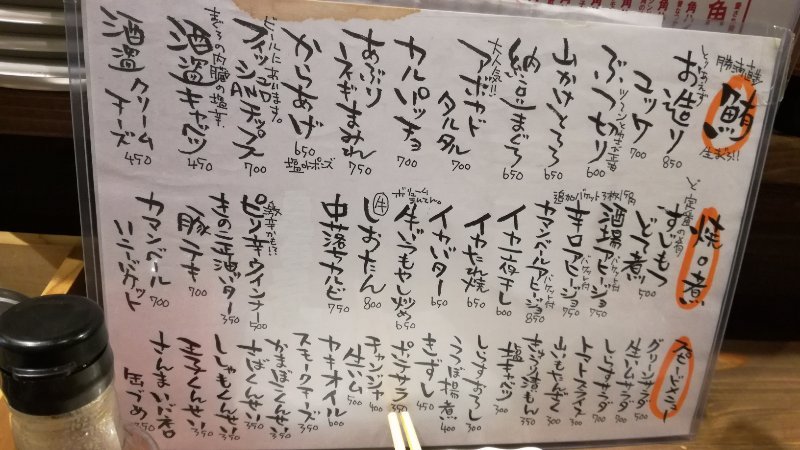 鮪
勝浦直送
生まぐろ!!
お造り 850
ユッケ 700
ぶつ切り 600
山かけとろろ 650
納豆まぐろ 650
大人気!!
アボカドタルタル 700
カルパッチョ 700
あぶりユースギまみれ 750
からあげ 650
塩orポーズ
ビールにあいます。
フィッシュ&チップス 700
まぐろの内臓の塩辛
酒盗キャベツ 450
酒盗クリームチーズ 450
焼・煮
ど定番の肴
すじもつどて煮 550
酒場アヒージョ 750
バケット付
辛口アヒージョ 750
バケット付
追加バケット3枚150円
カマンベールアヒージョ 850
バケット付
イカ一夜干し 650
イカたれ焼 650
イカバター 650
ボリュームまんてん
牛バラもやし炒め 650
牛
しおたん 800
中落ちカルビ 750
激辛かも!!
ピン辛ウインナー 500
きのこ正油バター 350
豚テキ 700
カマンベールハニーバケット 700
スピードメニュー
グリーンサラダ 500
生ハムサラダ 700
しらすサラダ 700
トマトスライス 300
山いもたんざく 300
塩キャベツ 300
しらすおろし 300
うつぼ揚煮 400
きずし 450
ポテサラ 350
チャンジャ 400
生ハム 500
ヤキオイル 600
スモークチーズ 350
かまぼこくんせい 350
さばくんせい 350
ししゃもくんせい 350
玉子くんせい 350
さんまかば焼缶づめ 350